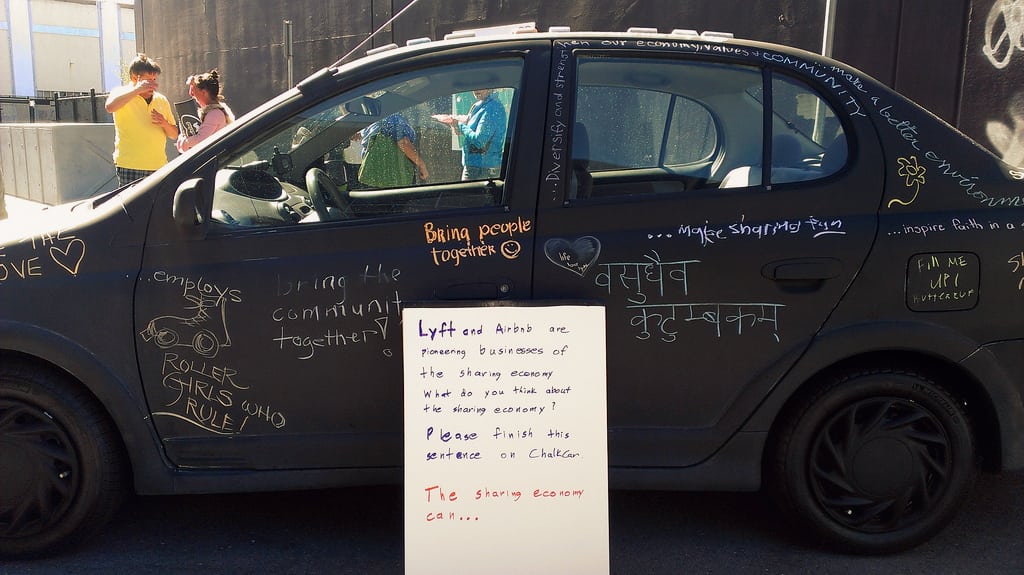 ...Diversify and strengthen our economy, values & COMMUNITY
...make a better environm
Bring people
together
...make sharing fun
...inspire faith in a
THE
OVE
life
...employs
ROLLER
GIRLS WHO
RULE!
bring the
communit
together!
वसुधैव
कुटुम्बकम्
FILL ME
UP!
Lyft and Airbnb are
pioneering businesses of
the sharing economy
What do you think about
the sharing economy?
Please finish this
sentence on ChalkCar.
The sharing economy
can...